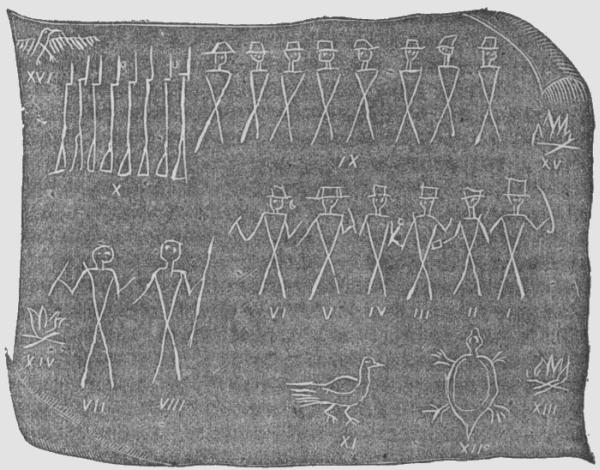 XVI
IX
XV
X
VI V IV III II I
XIV
VII VIII
XIII
XI XII